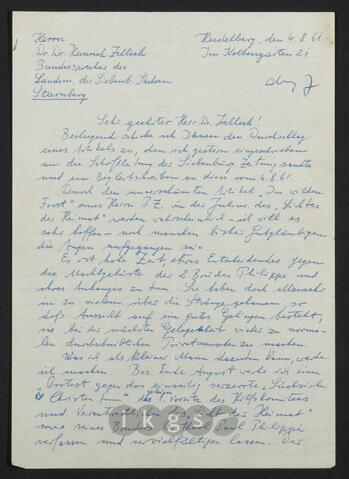 Herrn
Dr. Dr. Heinrich Zillich
Bundessprecher der
Landsm. der Siebenb. Sachsen
Starnberg
Heidelberg, den 4.8.61
Im Kolbengarten 21
Sehr geehrter Herr Dr. Zillich!
Beiliegend schicke ich Ihnen den Durchschlag
eines Artikels zu, den ich gestern eingeschrieben
an die Schriftleitung der Siebenbürg. Zeitung sandte
und ein Begleitschreiben an diese vom 4.8.61.
Durch den unverschämten Artikel „Im wilden
Forst" eines Herrn P.Z. in der Julinr. des „Lichtes
der Heimat" werden wahrscheinlich - ich will es
sehr hoffen - noch manchem bisher Gutgläubigen
die Augen aufgegangen sein.
Es ist hohe Zeit, etwas Entscheidendes gegen
die Machtgelüste der 2 Brüder Philippi und
ihres Anhanges zu tun. Sie haben doch allzusehr
in zu vielem über die Stränge gehauen, so
daß Aussicht auf ein gutes Gelingen besteht,
sie bei der nächsten Gelegenheit wieder zu norma-
len durchschnittlichen Privatmenschen zu machen.
Was ich als kleiner Mann dazutun kann, werde
ich machen. Bis Ende August werde ich einen
„Protest gegen das einseitig verzerrte „Sächsisch
Christentum" des 1. Vorsitz. des Hilfskomitees
und Verantwortlichen des „Licht der Heimat"
sowie seines Bruders Paul Philippi
verfassen und vervielfältigen lassen. Der
kgs